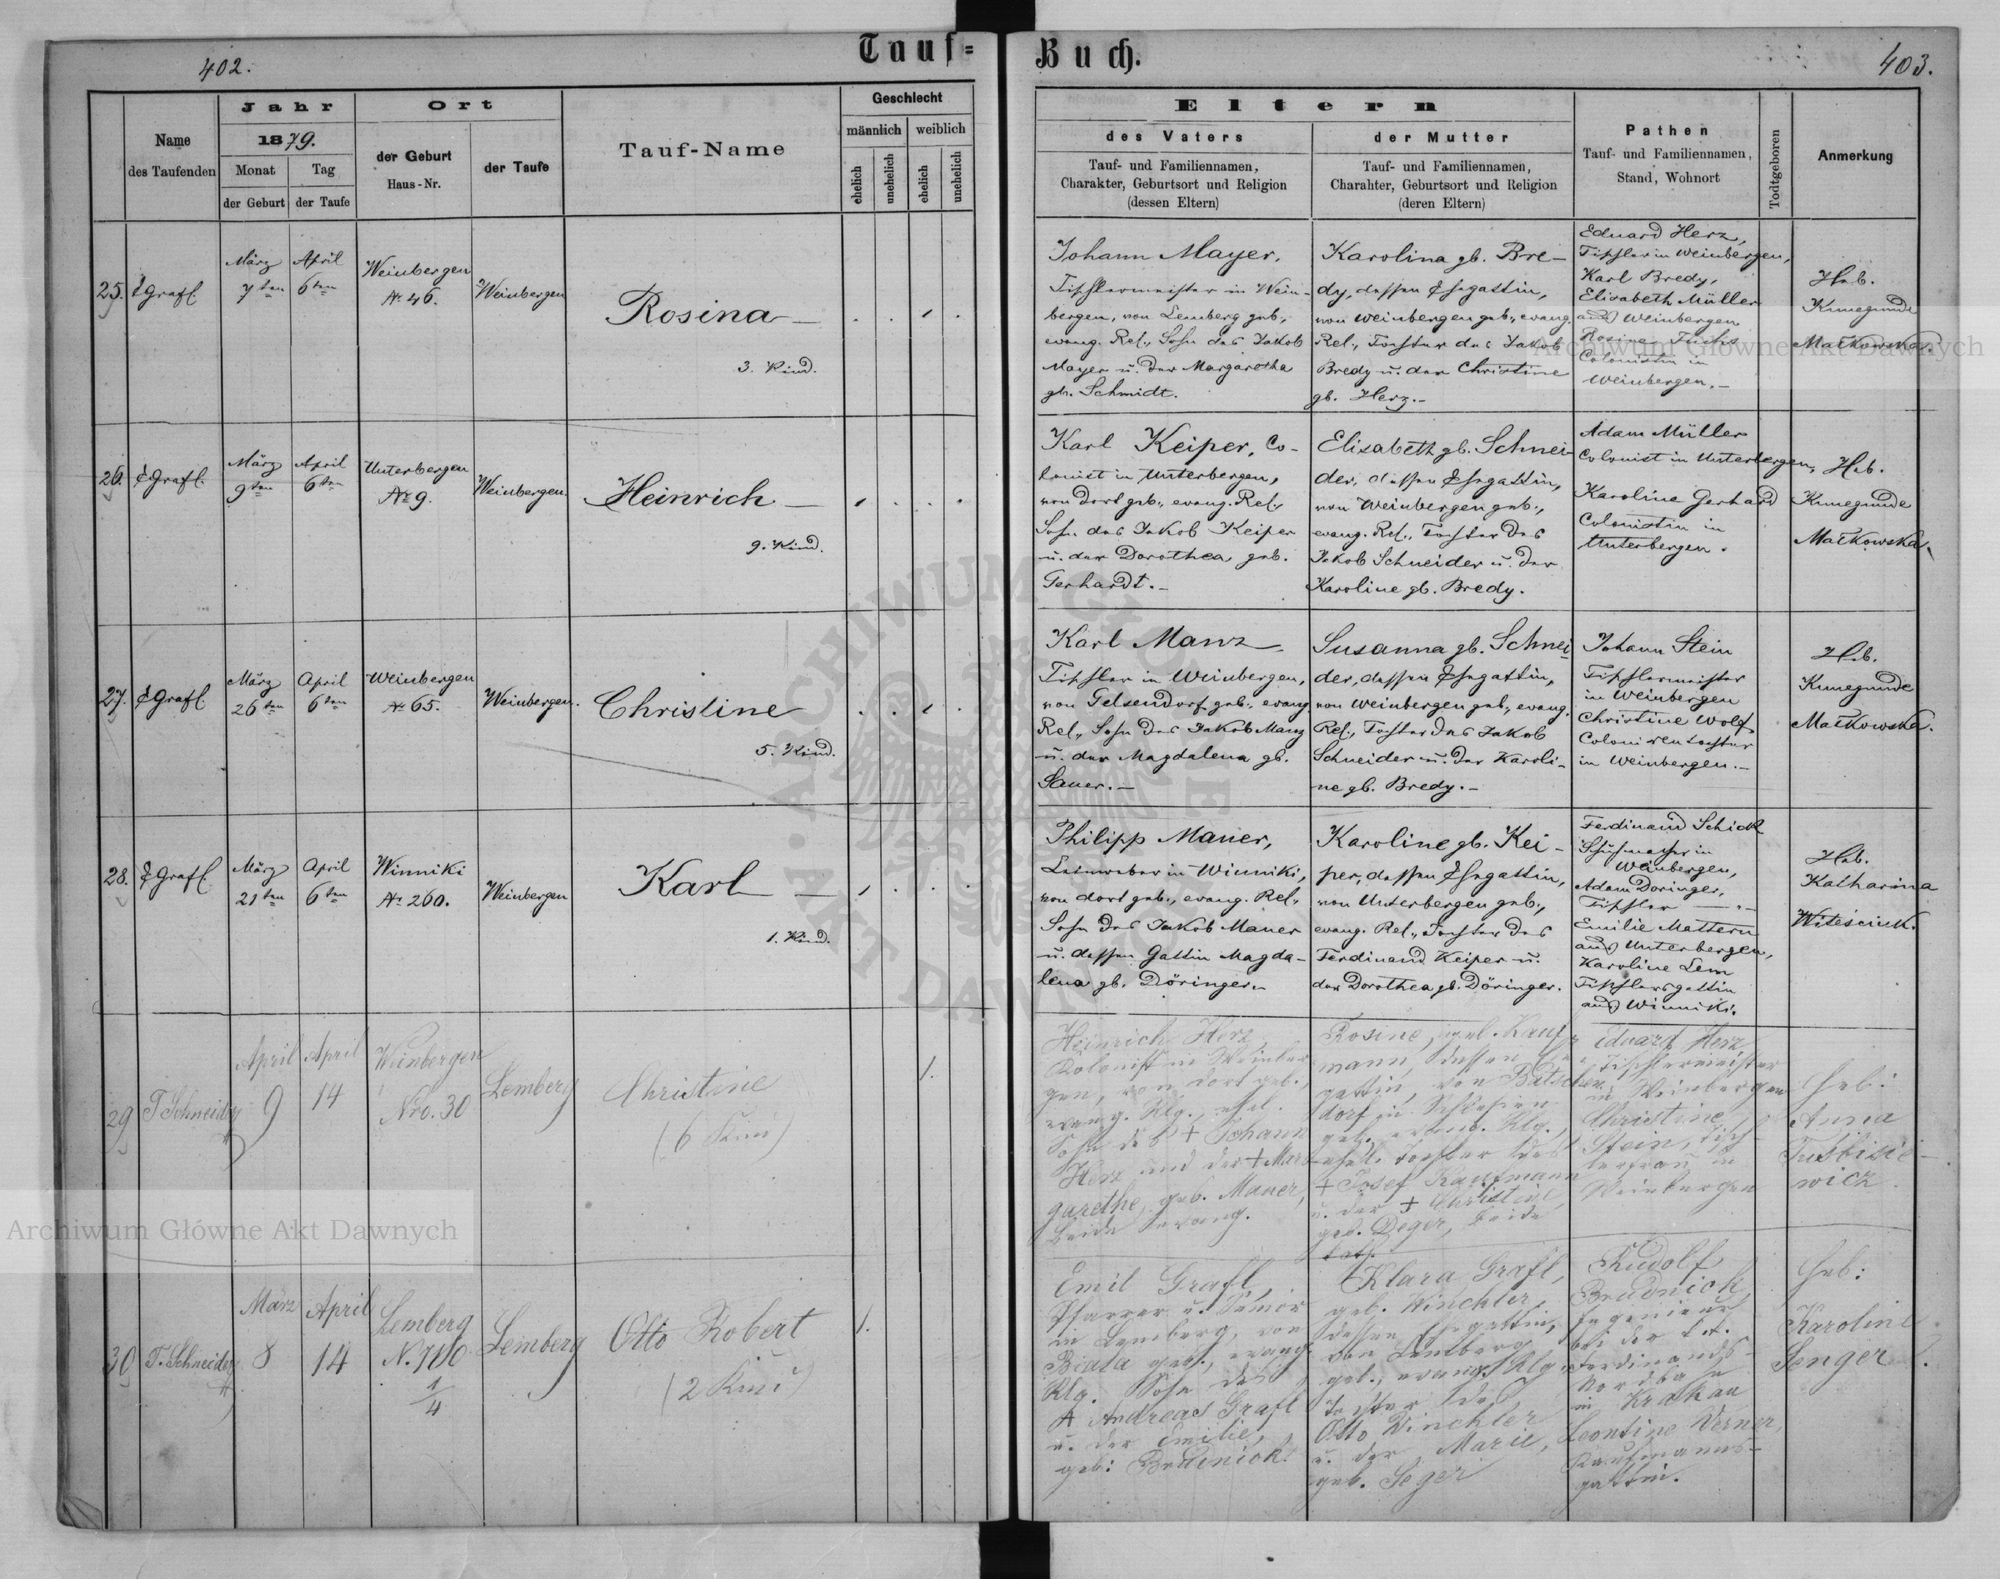 402.
Tauf=
Buch.
403.
Name
des Taufenden
Jahr
1879.
Monat
der Geburt
Tag
der Taufe
Ort
der Geburt
Haus-Nr.
der Taufe
Tauf-Name
Geschlecht
männlich
weiblich
ehelich
unehelich
ehelich
unehelich
Eltern
des Vaters
Tauf- und Familiennamen,
Charakter, Geburtsort und Religion
(dessen Eltern)
der Mutter
Tauf- und Familiennamen,
Charahter, Geburtsort und Religion
(deren Eltern)
Pathen
Tauf- und Familiennamen,
Stand, Wohnort
Todtgeboren
Anmerkung
25.
E Grafl
März
7ten
April
6ten
Weinbergen
Nr. 46.
Weinbergen
Rosina
3. Kind.
Johann Mayer,
Tischlermeister in Wein-
bergen, von Lemberg geb.,
evang. Rel., Sohn des Jakob
Mayer u. der Margaretha
gb. Schmidt.
Karolina gb. Bre-
dy, dessen Ehegattin,
von Weinbergen geb., evang.
Rel., Tochter des Jakob
Bredy u. der Christine
gb. Herz.-
Eduard Herz,
Tischler in Weinbergen,
Karl Bredy,
Elisabeth Müller
aus Weinbergen
Rosine Fuchs
Colonistin in
Weinbergen.-
Heb.
Kunegunde
Małkowska.
26.
E Grafl.
März
9ten
April
6ten
Unterbergen
Nr 9.
Weinbergen.
Heinrich
9. Kind.
Karl Keiper, Co-
lonist in Unterbergen,
von dort geb., evang. Rel.,
Sohn des Jakob Keiper
u. der Dorothea geb.
Gerhardt.-
Elisabeth gb. Schnei-
der, dessen Ehegattin,
von Weinbergen geb.,
evang. Rel., Tochter des
Jakob Schneider u. der
Karoline gb. Bredy.
Adam Müller
Colonist in Unterbergen,
Karoline Gerhard
Colonistin in
Unterbergen.
Heb.
Kunegunde
Małkowska.
27.
E Grafl
März
26ten
April
6ten
Weinbergen
Nr 65.
Weinbergen.
Christine
5. Kind.
Karl Manz,
Tischler in Weinbergen,
von Gelsendorf geb., evang.
Rel., Sohn des Jakob Manz
u. der Magdalena gb.
Sauer.-
Susanna gb. Schnei-
der, dessen Ehegattin,
von Weinbergen geb., evang.
Rel., Tochter des Jakob
Schneider u. der Karoli-
ne gb. Bredy.-
Johann Stein
Tischlermeister
in Weinbergen
Christine Wolf
Colonistentochter
in Weinbergen.-
Heb.
Kunegunde
Małkowska.
28.
E Grafl
März
21ten
April
6ten
Winniki
Nr 260.
Weinbergen
Karl
1. Kind.
Philipp Mauer,
Leinweber in Winniki,
von dort geb., evang. Rel.,
Sohn des Jakob Mauer
u. dessen Gattin Magda-
lena gb. Döringer.
Karoline gb. Kei-
per, dessen Ehegattin,
von Unterbergen geb.,
evang. Rel., Tochter des
Ferdinand Keiper u.
der Dorothea gb. Döringer.
Ferdinand Schick
Schuhmacher in
Weinbergen,
Adam Doringer,
Tischler
Emilie Mattern
aus Unterbergen,
Karoline Lem
Tischlersgattin
aus Winniki.
Heb.
Katharina
29
T Schneider
April
9
April
14
Weinbergen
Nro. 30
Lemberg
Christine
(6 Kind)
1.
Heinrich Herz,
Kolonist in Weinber-
gen, von dort geb.,
evang. Rlg., ehel.
Sohn des + Johann
Herz und der + Mar-
garethe, geb. Mauer,
beide evang.
Rosine, geb. Kauf-
mann, dessen Ehe-
gattin, von
dorf in Schlesien
geb., evang. Rlg.,
ehel. Tochter des
+ Josef Kaufmann
u. der + Christine
geb. Deger, beide
kath.
Eduard Herz
Tischlermeister
in Weinbergen
Christine
Stein, Tisch-
lerfrau in
Weinbergen
Heb:
Anna
30
T. Schneider
März
8
April
14
Lemberg
N. 700
1/4
Lemberg
Otto Robert
(2 Kind)
1.
Emil Grafl,
Pfarrer u. Senior
in Lemberg, von
Biala geb., evang.
Rlg. Sohn des
+ Andreas Grafl
u. der Emilie,
geb: Brudnick.
Klara Grafl,
geb. Winckler,
dessen Ehegattin,
von Lemberg
geb., evang. Rlg.,
Tochter des
Otto Winckler
u. der Marie,
geb. Seger
Rudolf
Brudnick,
Ingenieur
bei der k.k.
Ferdinands-
Nordbahn
in Krakau
Leontine Werner,
Kaufmanns-
gattin.
Heb:
Karoline
Senger
Archiwum Główne Akt Dawnych
Archiwum Główne Akt Dawnych